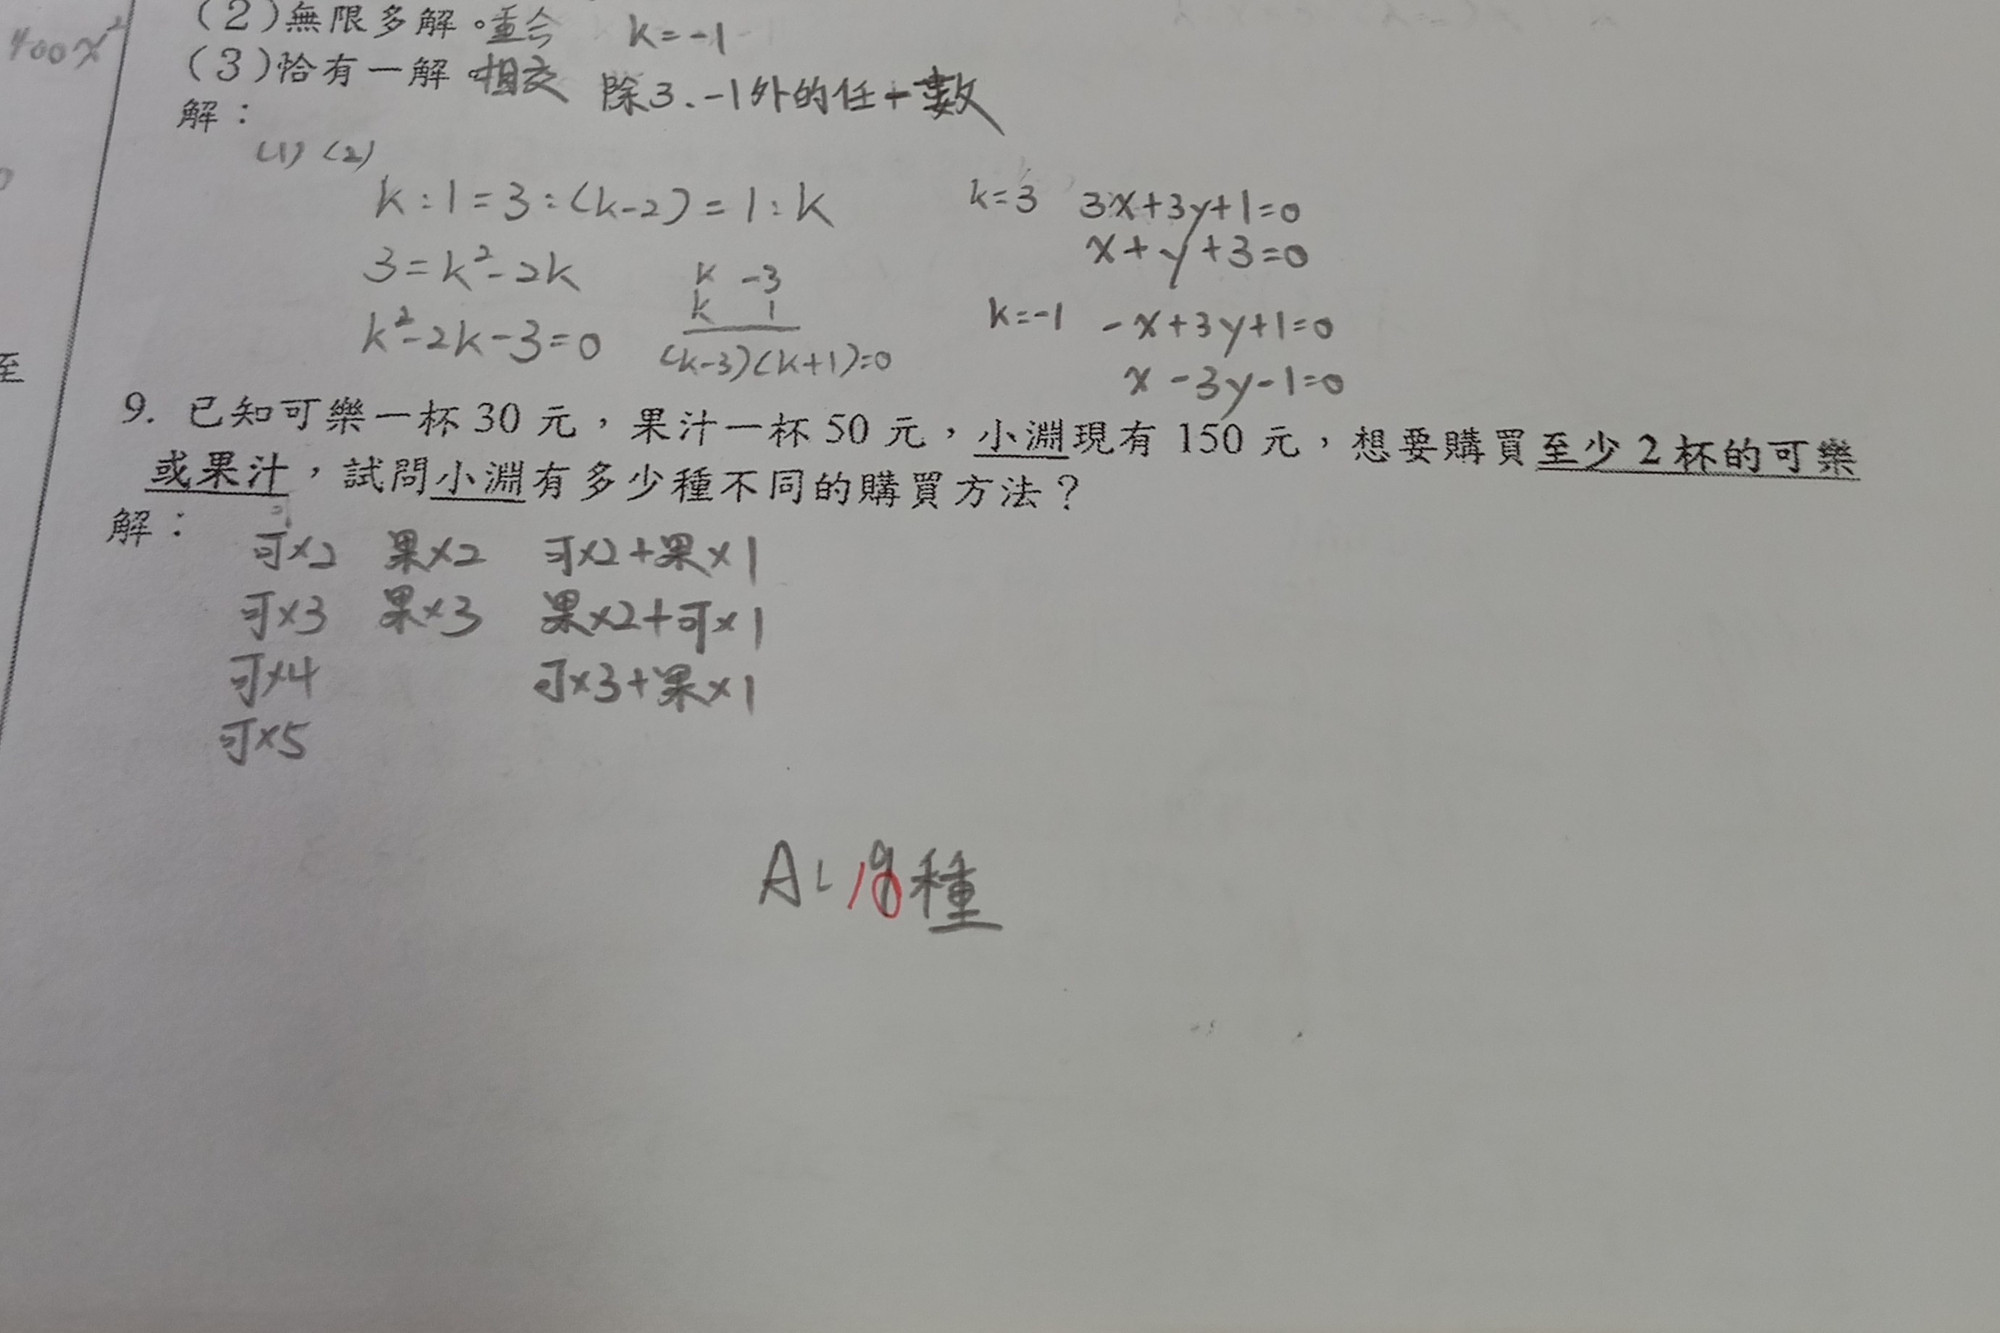 400x²
(2)無限多解。重合 k=-1
(3)恰有一解。相交 除3、-1外的任一數
解：
(1) (2)
k:1=3:(k-2)=1:k
3=k²-2k
k²-2k-3=0
k -3
k 1
(k-3)(k+1)=0
k=3 3x+3y+1=0
x+y+3=0
k=-1 -x+3y+1=0
x-3y-1=0
至
9. 已知可樂一杯 30 元，果汁一杯 50 元，小淵現有 150 元，想要購買至少 2 杯的可樂
或果汁，試問小淵有多少種不同的購買方法？
解：
可×2 果×2 可×2+果×1
可×3 果×3 果×2+可×1
可×4 可×3+果×1
可×5
A: 種